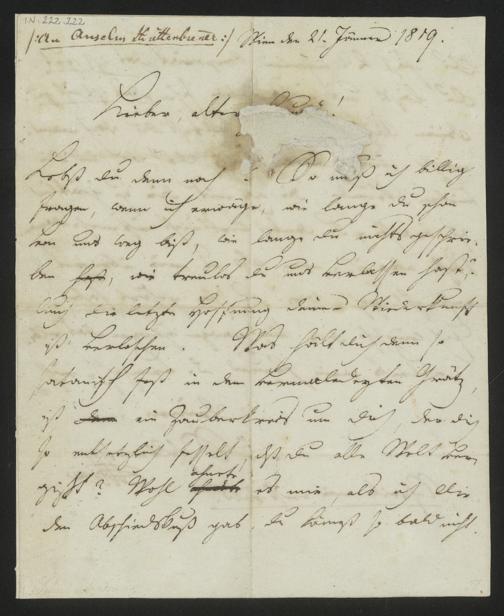 I.N. 222.222
/:An Anselm Hüttenbrenner:/ Wien den 21. Jänner 1819.
Lieber, alter !
Lebst du denn noch? So muß ich billig
fragen, wenn ich erwäge, wie lange du schon
von uns weg bist, wie lange du nichts geschrie-
ben hast, wie treulos du uns verlassen hast,
auch die letzte Hoffnung deiner Wiederkunft
ist verloschen. Was hält dich denn so
satanisch fest in dem vermaledeyten Grätz,
ist ein Zauberkreis um dich, der dich
so entsetzlich fesselt, daß du alle Welt ver-
gißt? Wohl ahnete es mir als ich dir
den Abschiedskuß gab, du kömst so bald nicht.